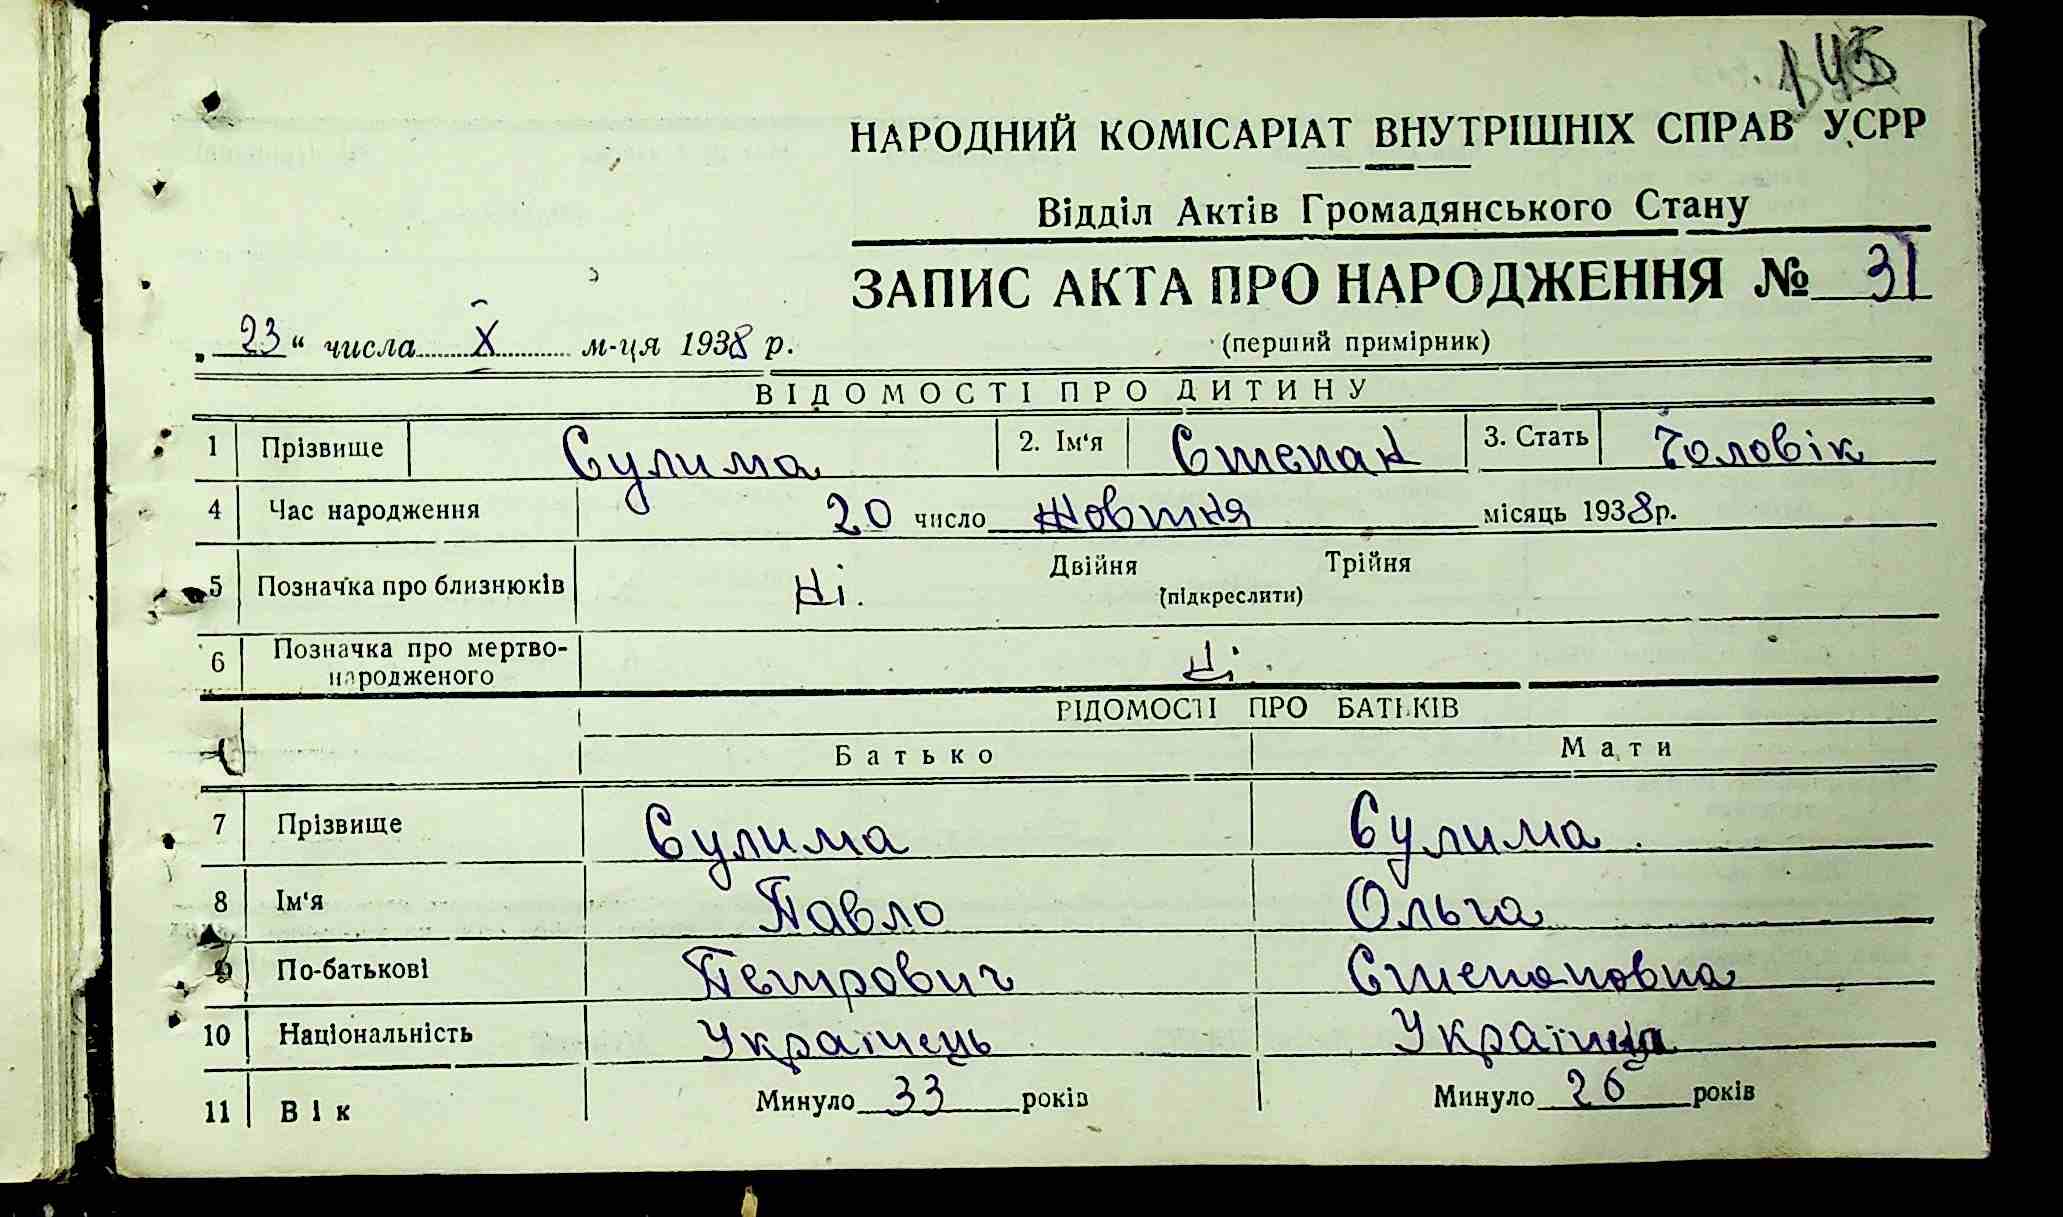 НАРОДНИЙ КОМІСАРІАТ ВНУТРІШНІХ СПРАВ УСРР
Відділ Актів Громадянського Стану
ЗАПИС АКТА ПРО НАРОДЖЕННЯ № 31
„23“ числа X м-ця 1938 р.
(перший примірник)
ВІДОМОСТІ ПРО ДИТИНУ
1 Прізвище Сулима 2. Ім‘я Степан 3. Стать Чоловік
4 Час народження 20 число Жовтня місяць 1938 р.
5 Позначка про близнюків Ні. Двійня Трійня
(підкреслити)
6 Позначка про мертво-
народженого Ні.
ВІДОМОСТІ ПРО БАТЬКІВ
Батько Мати
7 Прізвище Сулима Сулима
8 Ім‘я Павло Ольга
9 По-батькові Петрович Степановна
10 Національність Українець Українка
11 Вік Минуло 33 років Минуло 26 років